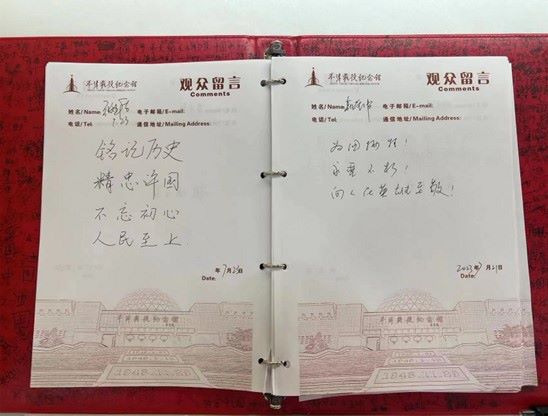 平津战役纪念馆
观众留言
Comments
姓名/Name:
电子邮箱/E-mail:
电话/Tel:
通信地址/Mailing Address:
铭记历史
精忠许国
不忘初心
人民至上
年7月23日
Date:
平津战役纪念馆
1948.11.29
平津战役纪念馆
观众留言
Comments
姓名/Name:
电子邮箱/E-mail:
电话/Tel:
通信地址/Mailing Address:
为国牺牲!
永垂不朽!
向人民英雄至敬!
2023年7月21日
Date:
平津战役纪念馆
1948.11.29